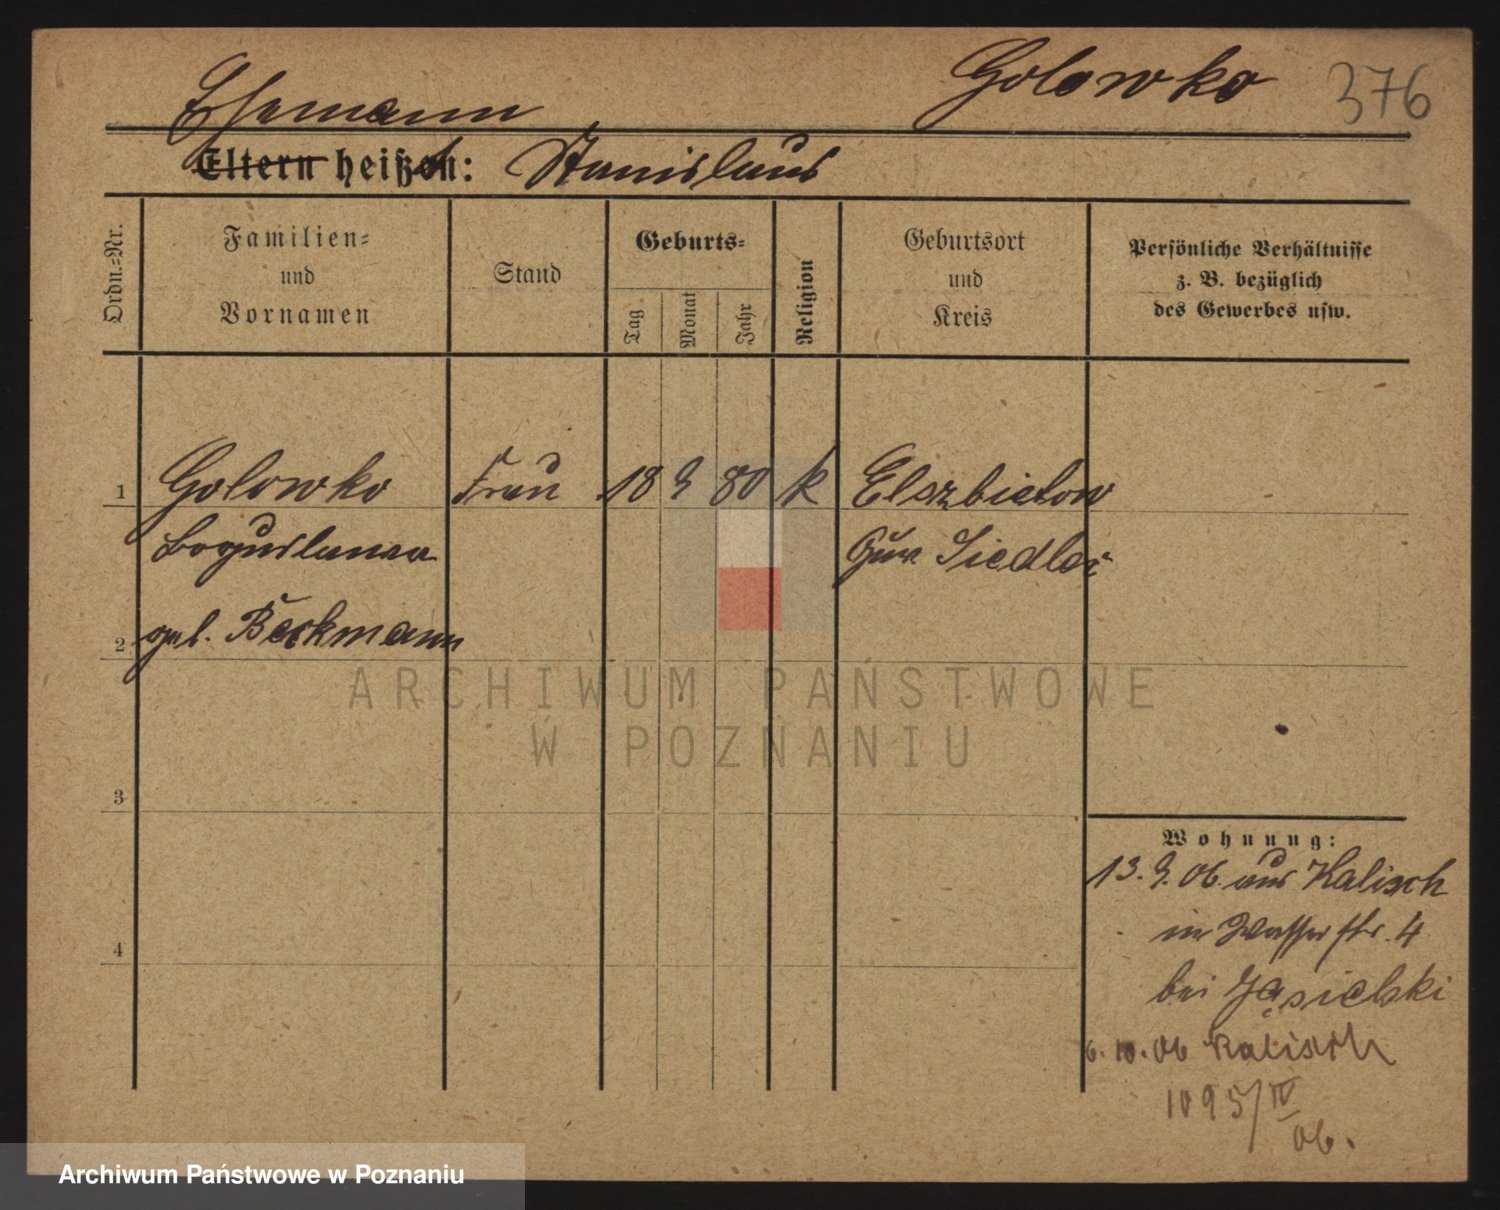 Golowko 376
Ehemann
Eltern heißen: Stanislaus
Ordn.=Nr.
Familien=
und
Vornamen
Stand
Geburts=
Tag.
Monat
Jahr
Religion
Geburtsort
und
Kreis
Persönliche Verhältnisse
z. B. bezüglich
des Gewerbes usw.
1 Golowko Frau 18 9 80 k Elszbietow
Boguslawa Guv. Siedlec
2 geb. Beckmann
ARCHIWUM PAŃSTWOWE
W POZNANIU
3
Wohnung:
13. 9. 06. aus Kalisch
in Wasserstr. 4
4
bei Jąsielski
6. 10. 06 Kalisch
1095/IV
06.
Archiwum Państwowe w Poznaniu